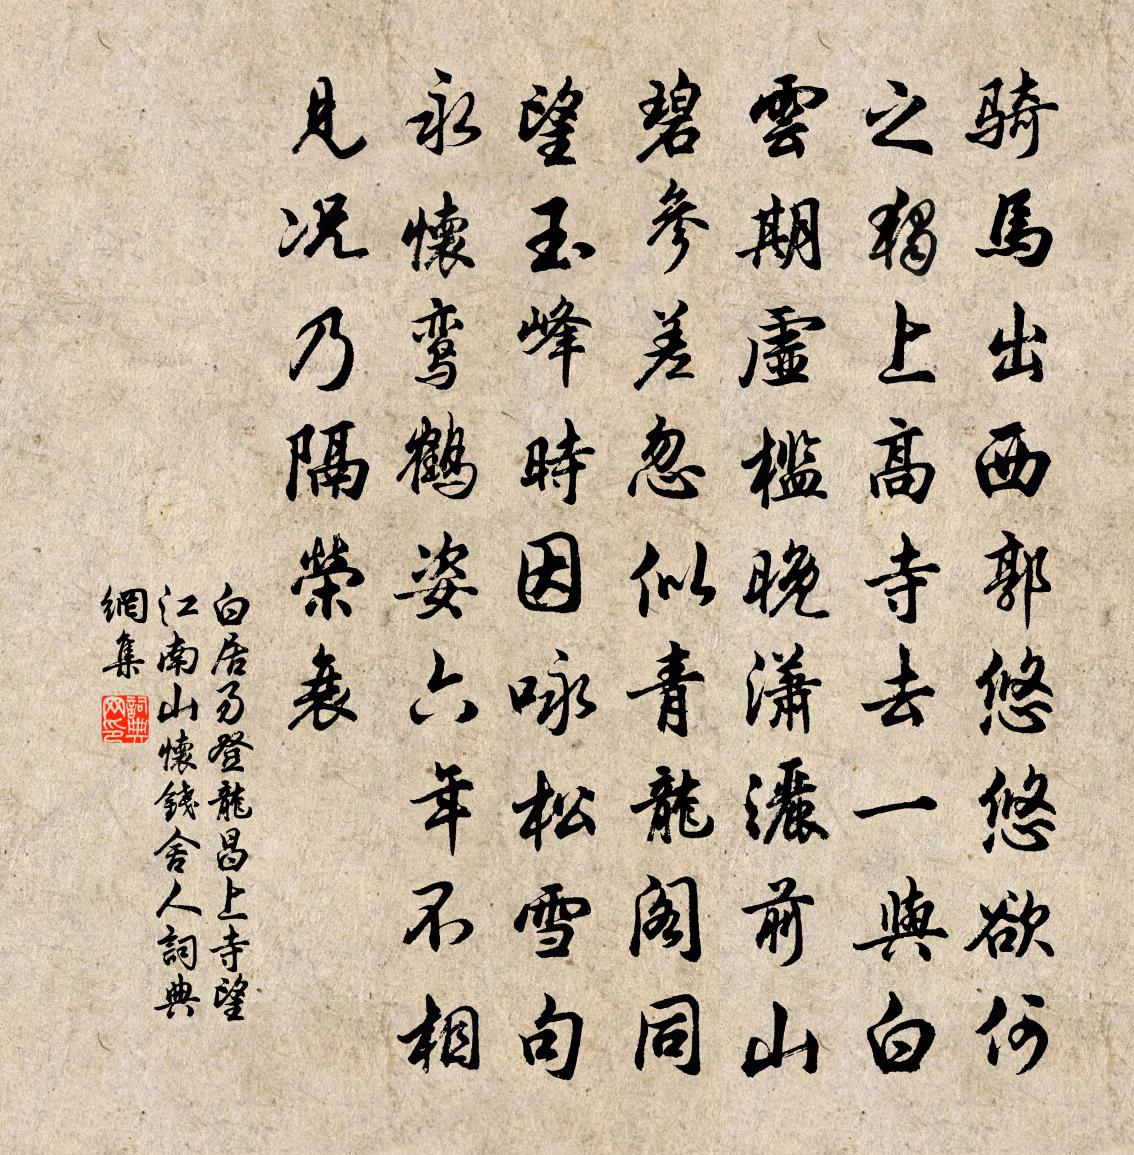 騎馬出西郭悠悠欲何
之獨上高寺去一與白
雲期虛檻晚瀟灑前山
碧參差忽似青龍閣同
望玉峰時因咏松雪句
永懷鸞鶴姿六年不相
見況乃隔榮衰
白居易登龍昌上寺望
江南山懷錢舍人詞典
網集
詞典
网印